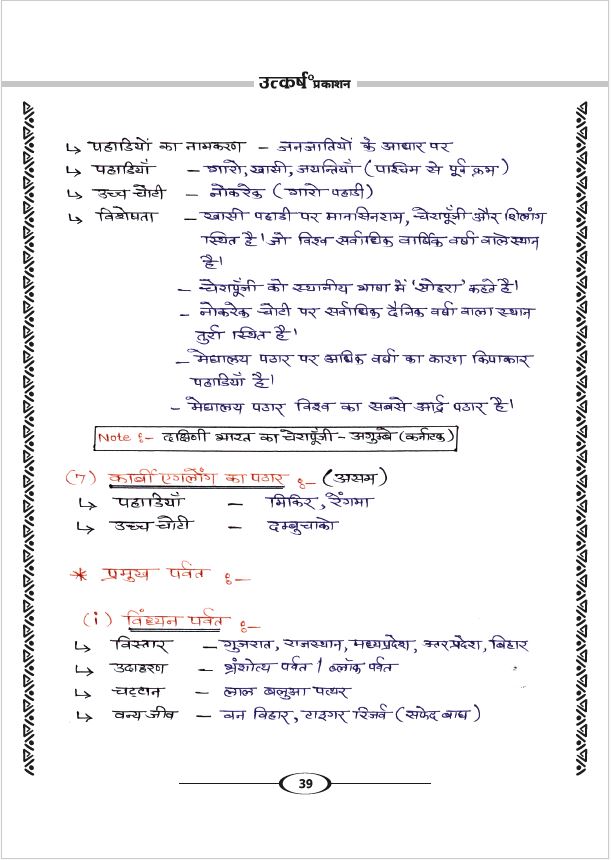 उत्कर्ष प्रकाशन
↳ पहाडियों का नामकरण – जनजातियों के आधार पर
↳ पहाडियाँ – गारो, खासी, जयन्तियाँ (पाश्चिम से पूर्व क्रम)
↳ उच्च चोटी – नोकरेक (गारो पहाडी)
↳ विशेषता – खासी पहाडी पर मानसिनराम, चेरापूँजी और शिलांग
स्थित है। जो विश्व सर्वाधिक वार्षिक वर्षा वाले स्थान
है।
– चेरापूँजी को स्थानीय भाषा में 'सोहरा' कहते है।
– नोकरेक चोटी पर सर्वाधिक दैनिक वर्षा वाला स्थान
तुरा स्थित है।
– मेघालय पठार पर अधिक वर्षा का कारण किपाकार
पहाडियाँ है।
– मेघालय पठार विश्व का सबसे आर्द्र पठार है।
Note :- दक्षिणी भारत का चेरापूँजी – अगुम्बे (कर्नाटक)
(7) कार्बी एंगलोंग का पठार :- (असम)
↳ पहाडियाँ – मिकिर, रेंगमा
↳ उच्च चोटी – दम्बुचाको
* प्रमुख पर्वत :-
(i) विंध्यन पर्वत :-
↳ विस्तार – गुजरात, राजस्थान, मध्यप्रदेश, उत्तरप्रदेश, बिहार
↳ उदाहरण – भ्रंशोत्थ पर्वत / ब्लॉक पर्वत
↳ चट्टान – लाल बलुआ पत्थर
↳ वन्य जीव – वन विहार, टाइगर रिजर्व (सफेद बाघ)
39